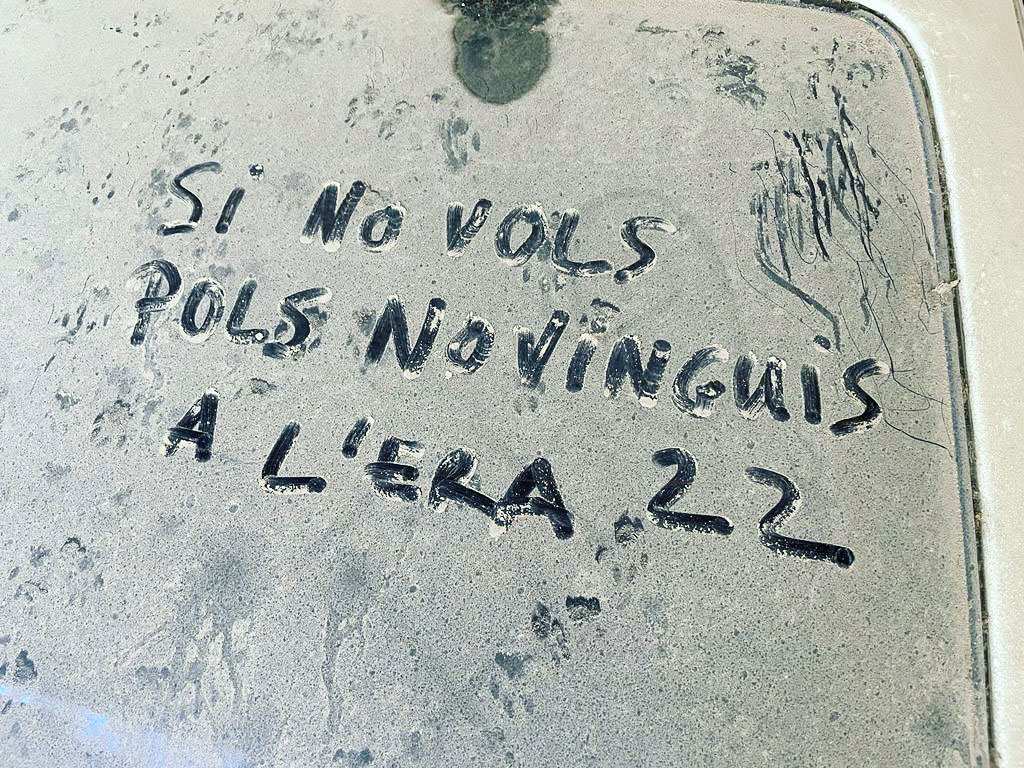 Si NO VOLS
POLS NO VINGUIS
A L'ERA 22